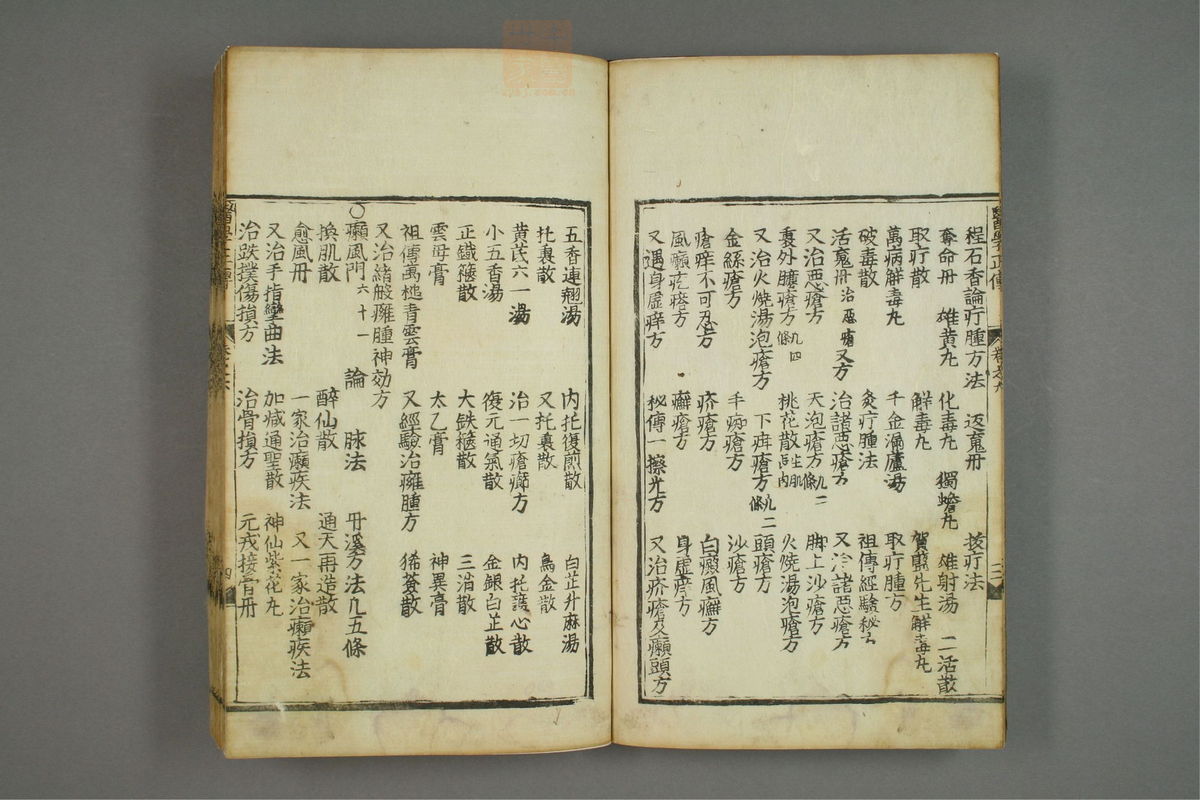 醫學正傳
程石香論疔腫方法 返魂丹 拔疔法
奪命丹 雄黃丸 化毒丸 獨蟾丸 雄射湯 二活散
取疔散 解毒丸 賀
先生解毒丸
萬病解毒丸 千金漏蘆湯 取疔腫方
破毒散 灸疔腫法 祖傳經驗秘方
活鬼丹治惡瘡又方 治諸惡瘡方 又治諸惡瘡方
又治惡瘡方 天泡瘡方 脚上沙瘡方
裏外臁瘡方 桃花散 火燒湯泡瘡方
又治火燒湯泡瘡方 下疳瘡方 頭瘡方
金絲瘡方 手瘑瘡方 沙瘡方
瘡痒不可忍方 疥瘡方 白癜風癬方
風癩疙瘩方 癬瘡方 身虛痒方
又遇身虛痒方 秘傳一擦光方 又治疥瘡及癩頭方
五香連翹湯 內托復煎散 白芷升麻湯
托裏散 又托裏散 烏金散
黃芪六一湯 治一切瘡癤方 內托護心散
小五香湯 復元通氣散 金銀白芷散
正鐵箍散 大鉄箍散 三消散
雲母膏 太乙膏 神異膏
祖傳萬槌青雲膏 又經驗治癰腫方 豨薟散
又治諸般癰腫神効方
○癩風門六十一 論 脉法 丹溪方法凡五條
換肌散 醉仙散 通天再造散
愈風丹 一家治癩疾法 又一家治癩疾法
又治手指攣曲法 加减通聖散 神仙紫花丸
治跌撲傷損方 治骨損方 元戎接骨丹
四